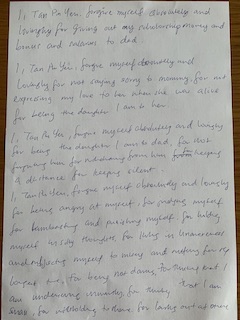 I, Tan Pei Yee, forgive myself absolutely and
lovingly for giving out my scholarship money and
bonus and salaries to dad.
I, Tan Pei Yee, forgive myself absolutely and
lovingly for not saying sorry to mummy, for not
expressing my love to her when she was alive
for being the daughter I am to her
I, Tan Pei Yee, forgive myself absolutely and lovingly
for being the daughter I am to dad, for not
forgiving him, for distancing from him, keeping
a distance, for keeping silent.
I, Tan Pei Yee, forgive myself absolutely and lovingly
for being angry at myself, for judging myself
for lambasting and punishing myself, for hiding
myself in silly thoughts, for living in unawareness
and myself to misery and nothing for my
longest time, for being not daring, for thinking that I
am undeserving, unworthy, for that I am
for withholding for lashing out at one